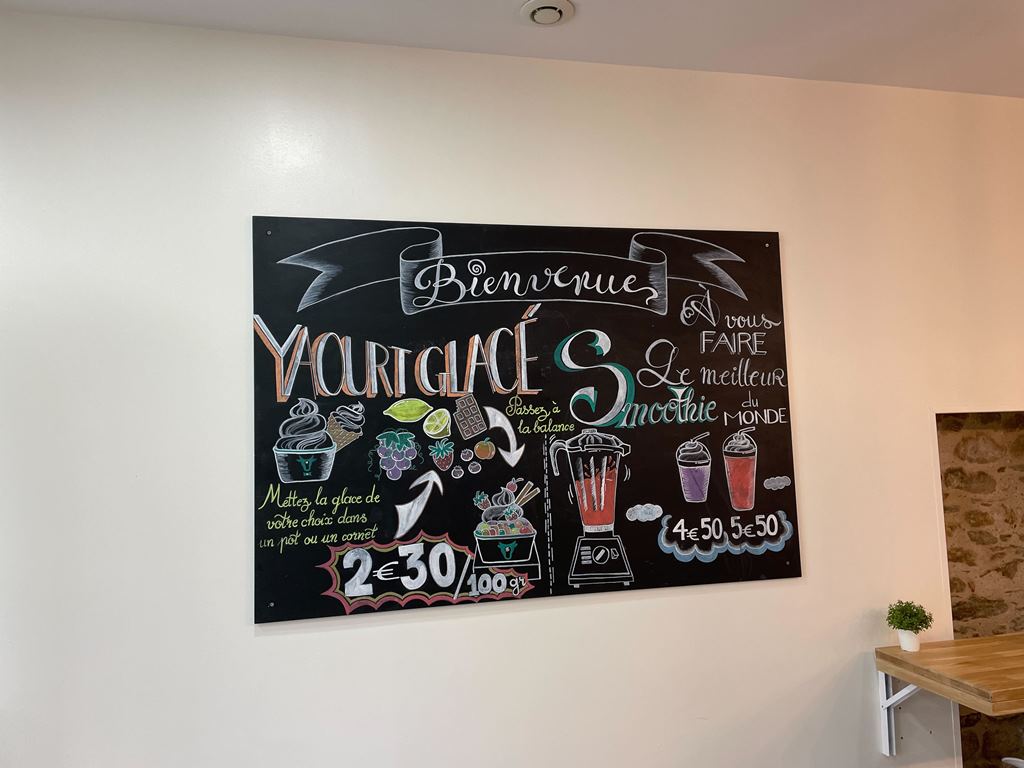 Bienvenue
YAOURT GLACÉ
Passez à
la balance
Mettez la glace de
votre choix dans
un pot ou un cornet
2€30/100gr
À vous
FAIRE
Le meilleur
Smoothie
du
MONDE
4€50 5€50